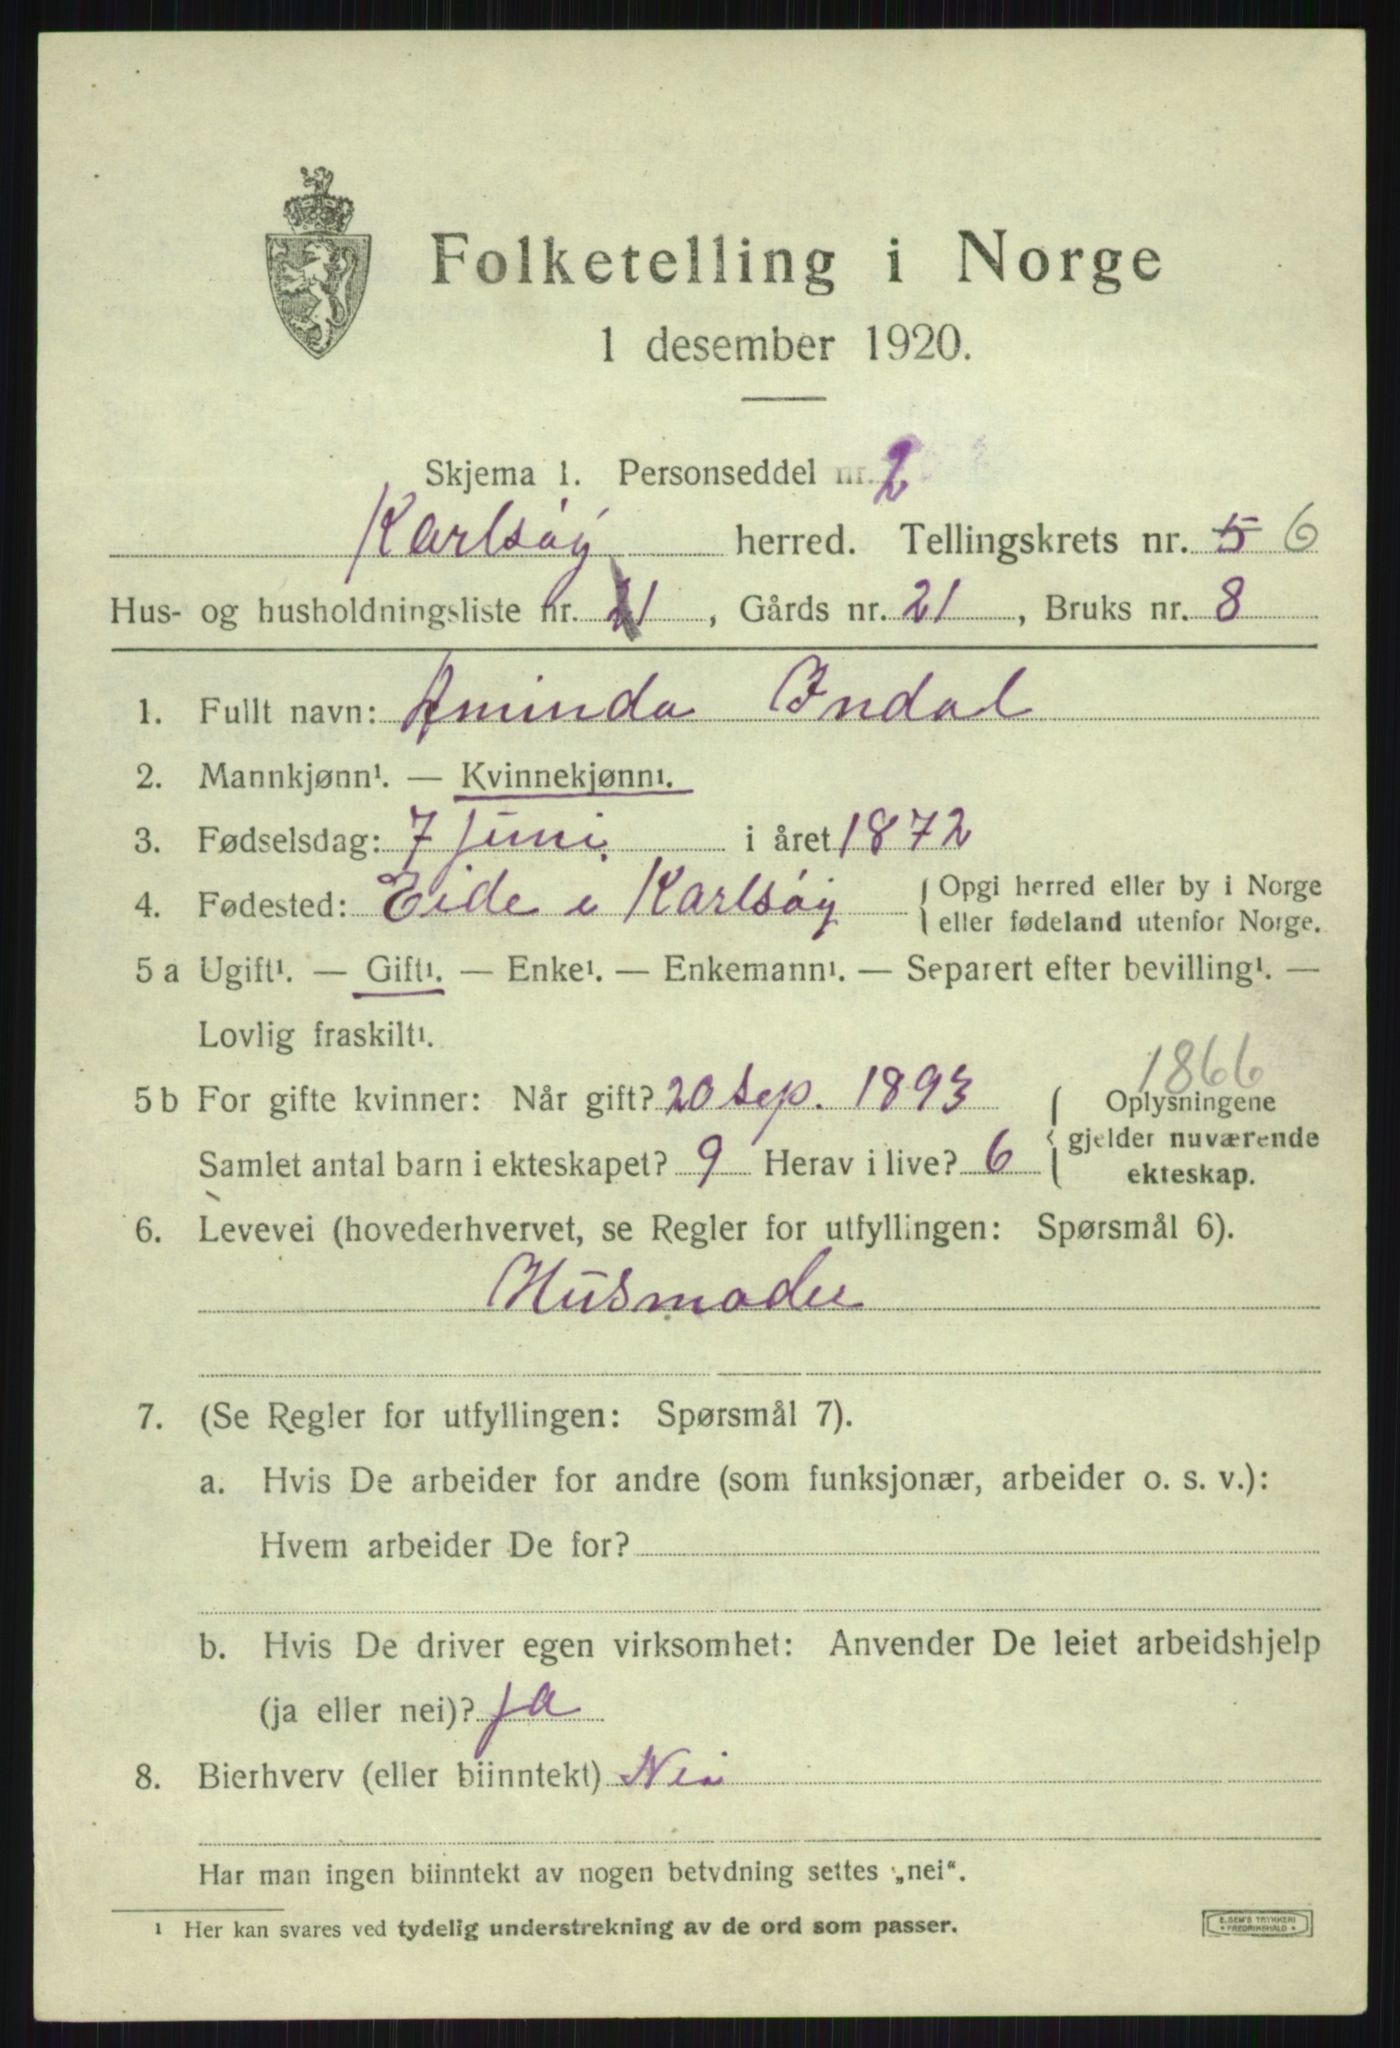 Folketelling i Norge
1 desember 1920.
Skjema 1. Personseddel nr. 2
Karlsøy herred. Tellingskrets nr. 5 6
Hus- og husholdningsliste nr. 21, Gårds nr. 21, Bruks nr. 8
1. Fullt navn: Aminda Indal
2. Mannkjønn¹. — Kvinnekjønn¹.
3. Fødselsdag: 7 juni i året 1872
4. Fødested: Eide i Karlsøy { Opgi herred eller by i Norge
eller fødeland utenfor Norge.
5 a Ugift¹. — Gift¹. — Enke¹. — Enkemann¹. — Separert efter bevilling¹. —
Lovlig fraskilt¹.
1866
5 b For gifte kvinner: Når gift? 20 sep. 1893 { Oplysningene
gjelder nuværende
Samlet antal barn i ekteskapet? 9 Herav i live? 6
ekteskap.
6. Levevei (hovederhvervet, se Regler for utfyllingen: Spørsmål 6).
Husmoder
7. (Se Regler for utfyllingen: Spørsmål 7).
a. Hvis De arbeider for andre (som funksjonær, arbeider o. s. v.):
Hvem arbeider De for?
b. Hvis De driver egen virksomhet: Anvender De leiet arbeidshjelp
(ja eller nei)? ja
8. Bierhverv (eller biinntekt) Nei
Har man ingen biinntekt av nogen betydning settes „nei“.
¹ Her kan svares ved tydelig understrekning av de ord som passer.
E. SEM'S TRYKKERI
FREDRIKSHALD